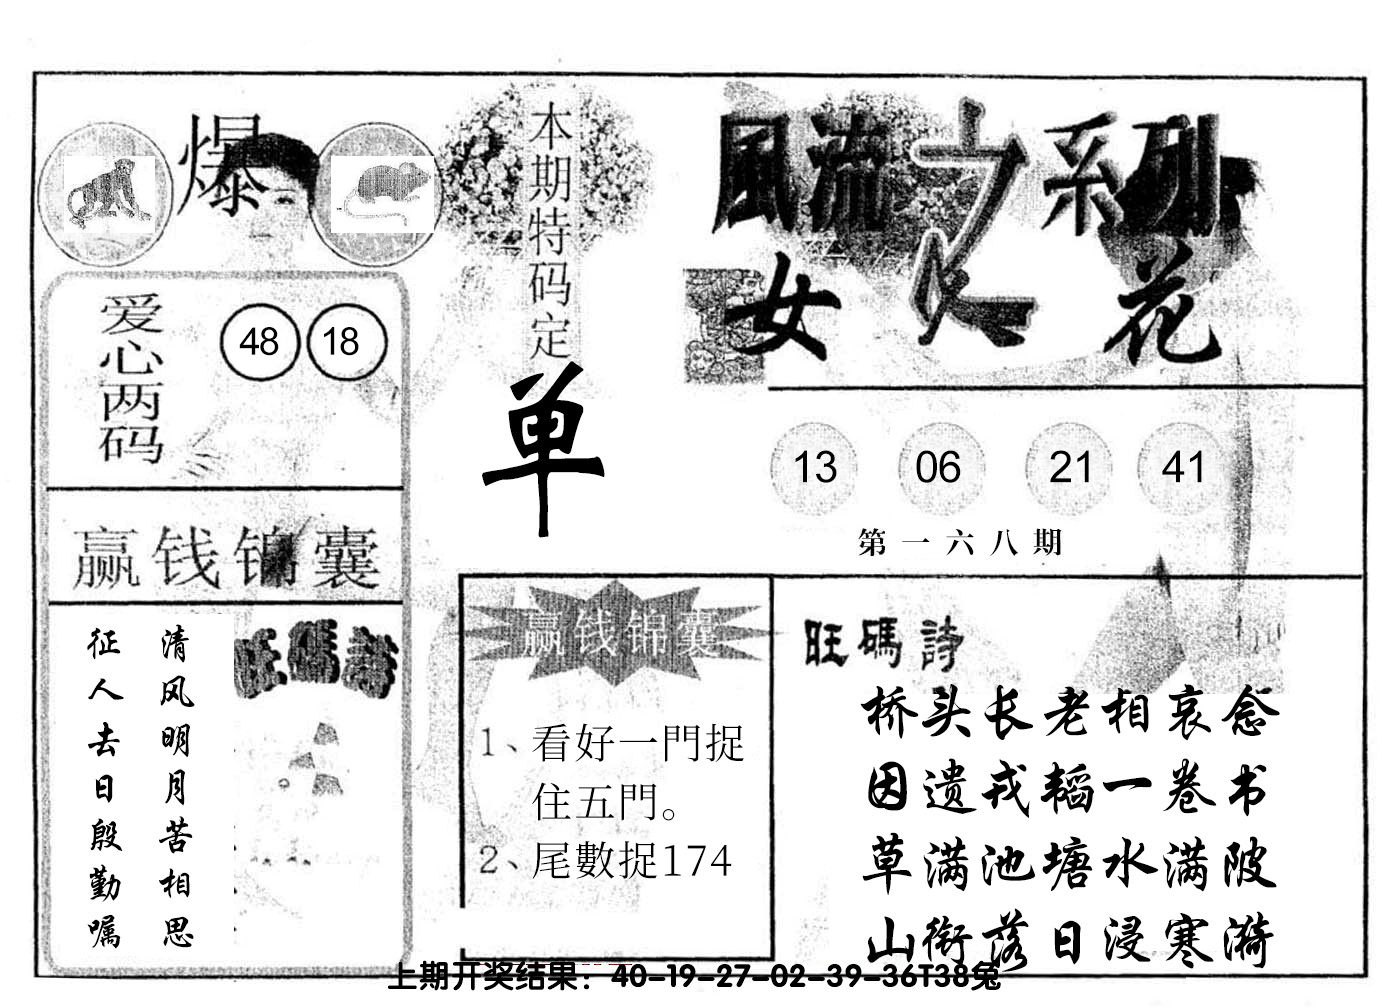 爆
本期特码定
单
風流之系列
女人花
爱心两码
48 18
13 06 21 41
第一六八期
赢钱锦囊
清风明月苦相思
征人去日殷勤嘱
旺碼詩
赢钱锦囊
1、看好一門捉
住五門。
2、尾數捉174
旺碼詩
桥头长老相哀念
因遗戎韬一卷书
草满池塘水满陂
山衔落日浸寒漪
上期开奖结果：40-19-27-02-39-36T38兔